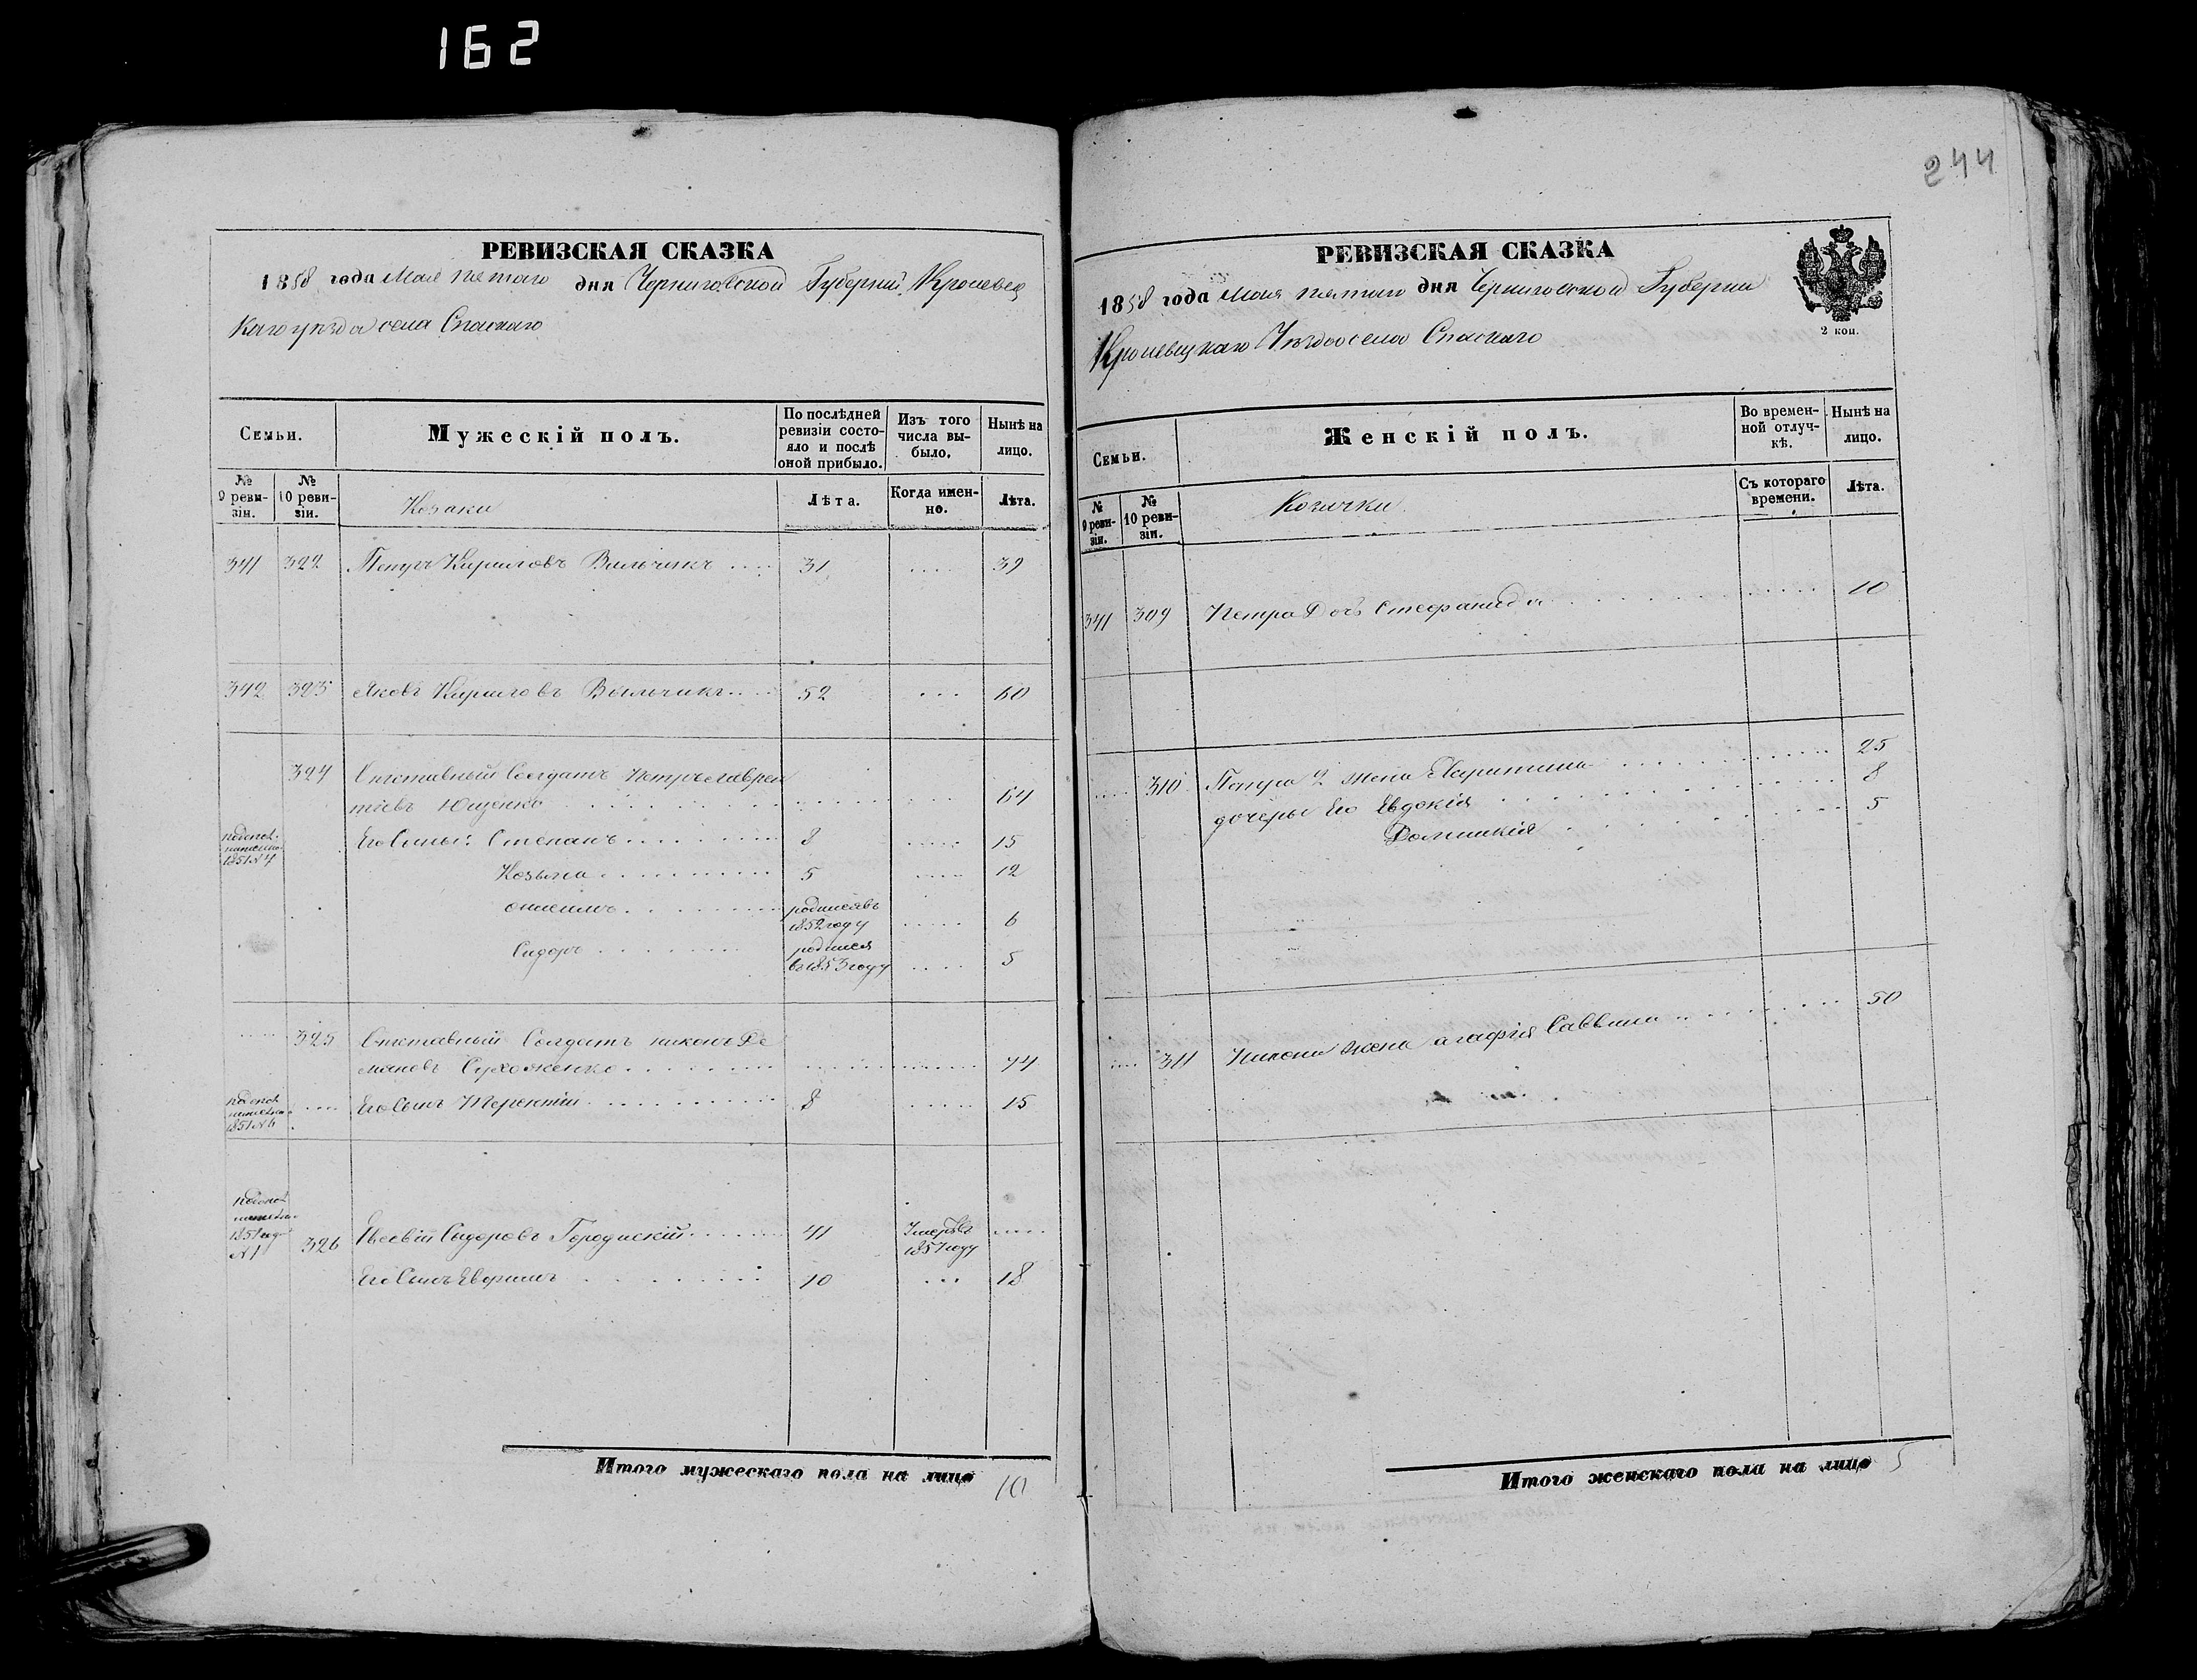 162
РЕВИЗСКАЯ СКАЗКА
1858 года Мая пятаго дня Черниговской Губернии Кролевец
каго уѣзда села Спаскаго
Семьи.
Мужескій полъ.
По послѣдней ревизіи состояло и послѣ оной прибыло.
Изъ того числа выбыло.
Нынѣ на лицо.
№ 9 ревизіи.
№ 10 ревизіи.
Козаки
Лѣта.
Когда именно.
Лѣта.
341 322 Петръ Кириловъ Вильчикъ .... 31 .... 39
342 323 Яковъ Кириловъ Вильчикъ .... 52 ... 60
324 Отставный Солдатъ Петръ Лаврен
тіевъ Ющенко 64
1851 № 4 Его Сыны: Степанъ 8 15
Козьма 5 12
Онисимъ родился въ 1852 году 6
Сидоръ родился въ 1853 году 5
325 Отставный Солдатъ Никонъ Де
мяновъ Сухоженко 74
1851 № 6 Его Сынъ Терентій 8 15
1851 года № 1 326 Евсевій Сидоровъ Городискій 41 Умеръ въ 1857 году
Его Сынъ Евфимъ 10 ... 18
Итого мужескаго пола на лицо 10
244
РЕВИЗСКАЯ СКАЗКА
1858 года Мая пятаго дня Черниговской Губернии
2 коп.
Кролевецкаго Уѣзда села Спаскаго
Семьи.
Женскій полъ.
Во временной отлучкѣ.
Нынѣ на лицо.
№ 9 ревизіи.
№ 10 ревизіи.
Козачки
Съ котораго времени.
Лѣта.
341 309 Петра Дочь Стефанида 10
310 Петра 2 жена Харитина 25
дочеры Его Евдокія 8
Домникія 5
311 Никона жена Агафія Саввина 50
Итого женскаго пола на лицо 5